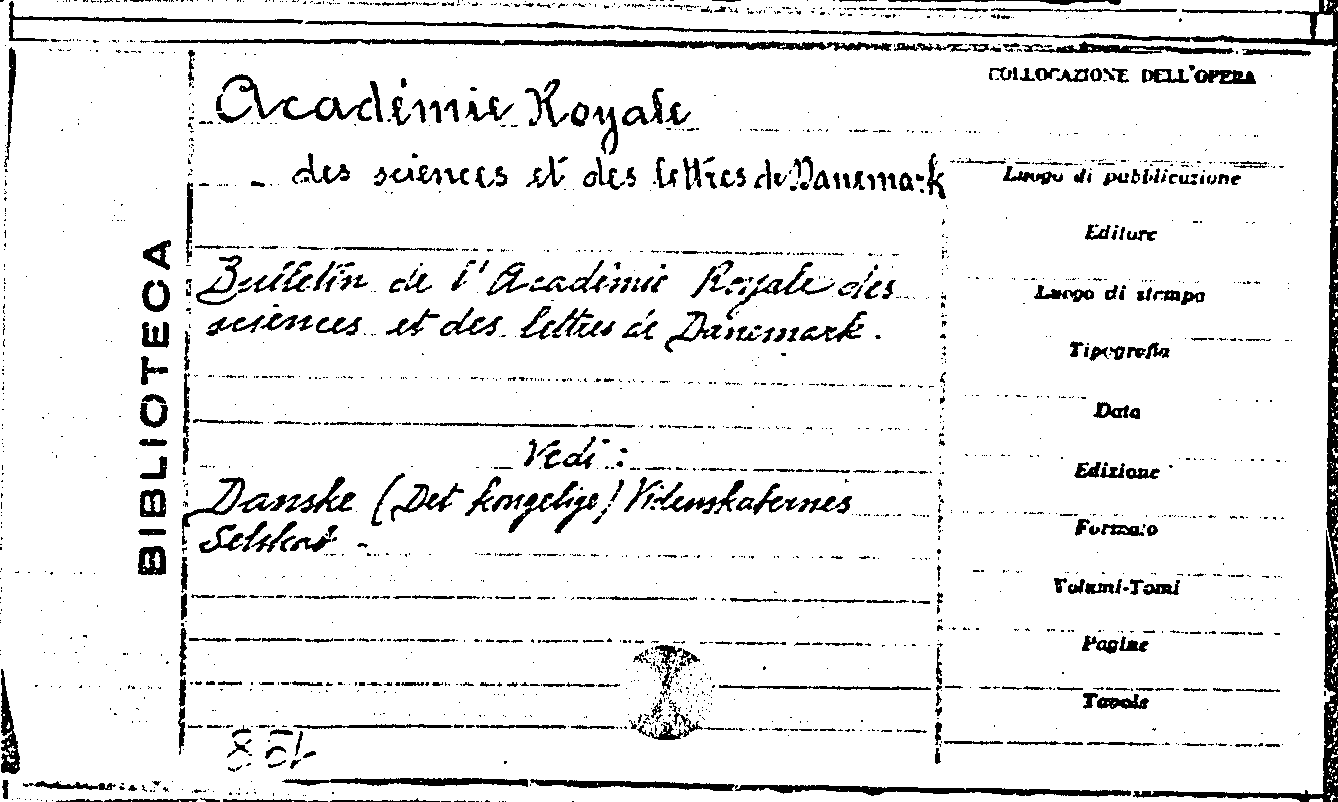 COLLOCAZIONE DELL'OPERA
Académie Royale
des sciences et des lettres de Danemark
Bulletin de l'Académie Royale des
sciences et des lettres de Danemark.
Vedi:
Danske (Det kongelige) Videnskabernes
Selskab -
BIBLIOTECA
Luogo di pubblicazione
Editore
Luogo di stampa
Tipografia
Data
Edizione
Formato
Volumi-Tomi
Pagine
Tavole